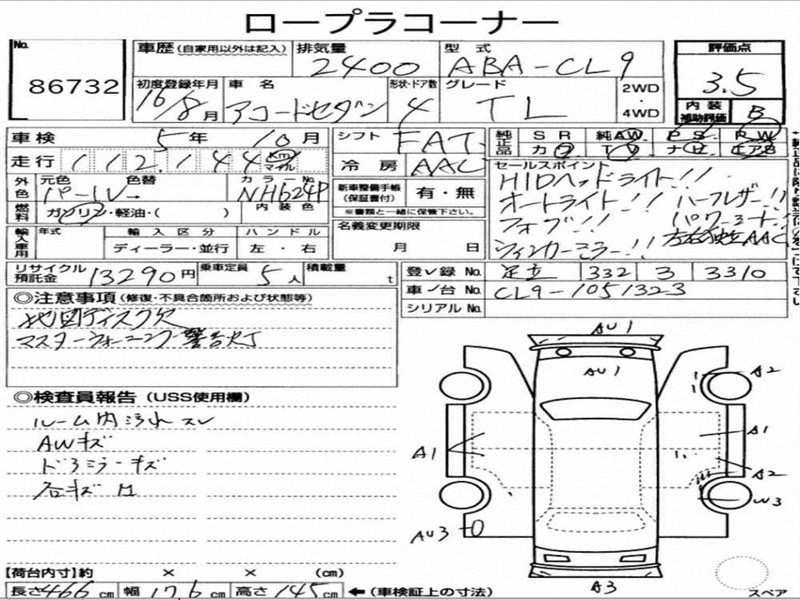 ロープラコーナー
No.
86732
車歴 (自家用以外は記入)
排気量
2400
型式
ABA-CL9
評価点
3.5
内装
補助評価
B
初度登録年月
16/8月
車名
アコードセダン
形状・ドア数
4
グレード
TL
2WD
・
4WD
車検
5年 10月
シフト
FAT
純正品
SR 純AW PS RW
カワ TV ナビ エアB
走行
112,144
Km
マイル
冷房
AAC
外色
元色
パール
色替
カラーNo.
NH624P
新車整備手帳
(保証書付)
有・無
※書類と一緒に保管下さい。
燃料
ガソリン・軽油・( )
内装色
名義変更期限
月 日
セールスポイント
HIDヘッドライト!!
オートライト!! ハーフレザー!!
フォグ!! パワーシート!!
ウィンカーミラー!! 左右独立AAC
輸入車用
年式
輸入区分
ハンドル
ディーラー・並行
左・右
リサイクル預託金
13290円
乗車定員
5人
積載量
t
登録No.
足立 332 3 3310
車台No.
CL9-1051323
シリアルNo.
◎注意事項 (修復・不具合個所および状態等)
地図ディスク欠
マスターウォーニング警告灯
◎検査員報告 (USS使用欄)
ルーム内汚れスレ
AWキズ
ドアミラーキズ
石キズ
AU1
AU1
A2
A1
A1
A2
W3
AU3
A3
【荷台内寸】約 × × (cm)
長さ466cm 幅176cm 高さ145cm ←(車検証上の寸法)
スペア